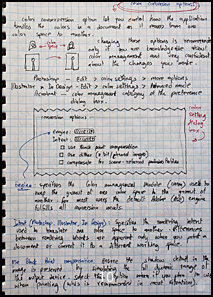 color conversion options
color conversion option let you control how the application
handles the colors in a document as it moves from one
color space to another.
changing these options is recommended
only if you are knowledgeable about
color management and very confident
about the changes you make.
Photoshop - Edit > color settings > more options
Illustrator > In Design - Edit > color settings > Advanced mode
Acrobat - color management category of the preference
dialog box.
color
setting
dialog
box
engine:
intent:
use black point compensation
use dither (8 bit/channel images)
compensate for scene-referred profiles
Engine - specifies the color management module (CMM) used to
map the gamut of one color space to the gamut of
another. for most users the default Adobe (ACE) engine
fulfills all conversion needs.
Intent (Photoshop, Illustrator, In Design): specifies the rendering intent
used to translate one color space to another. differences
between rendering intents are apparent only when you print a
document or convert it to a different working space.
Use black point compensation: ensures the shadow detail in the
image is preserved by simulating the full dynamic range of
the output device. select this option when you plan to use
when printing (which is recommended in most situations).